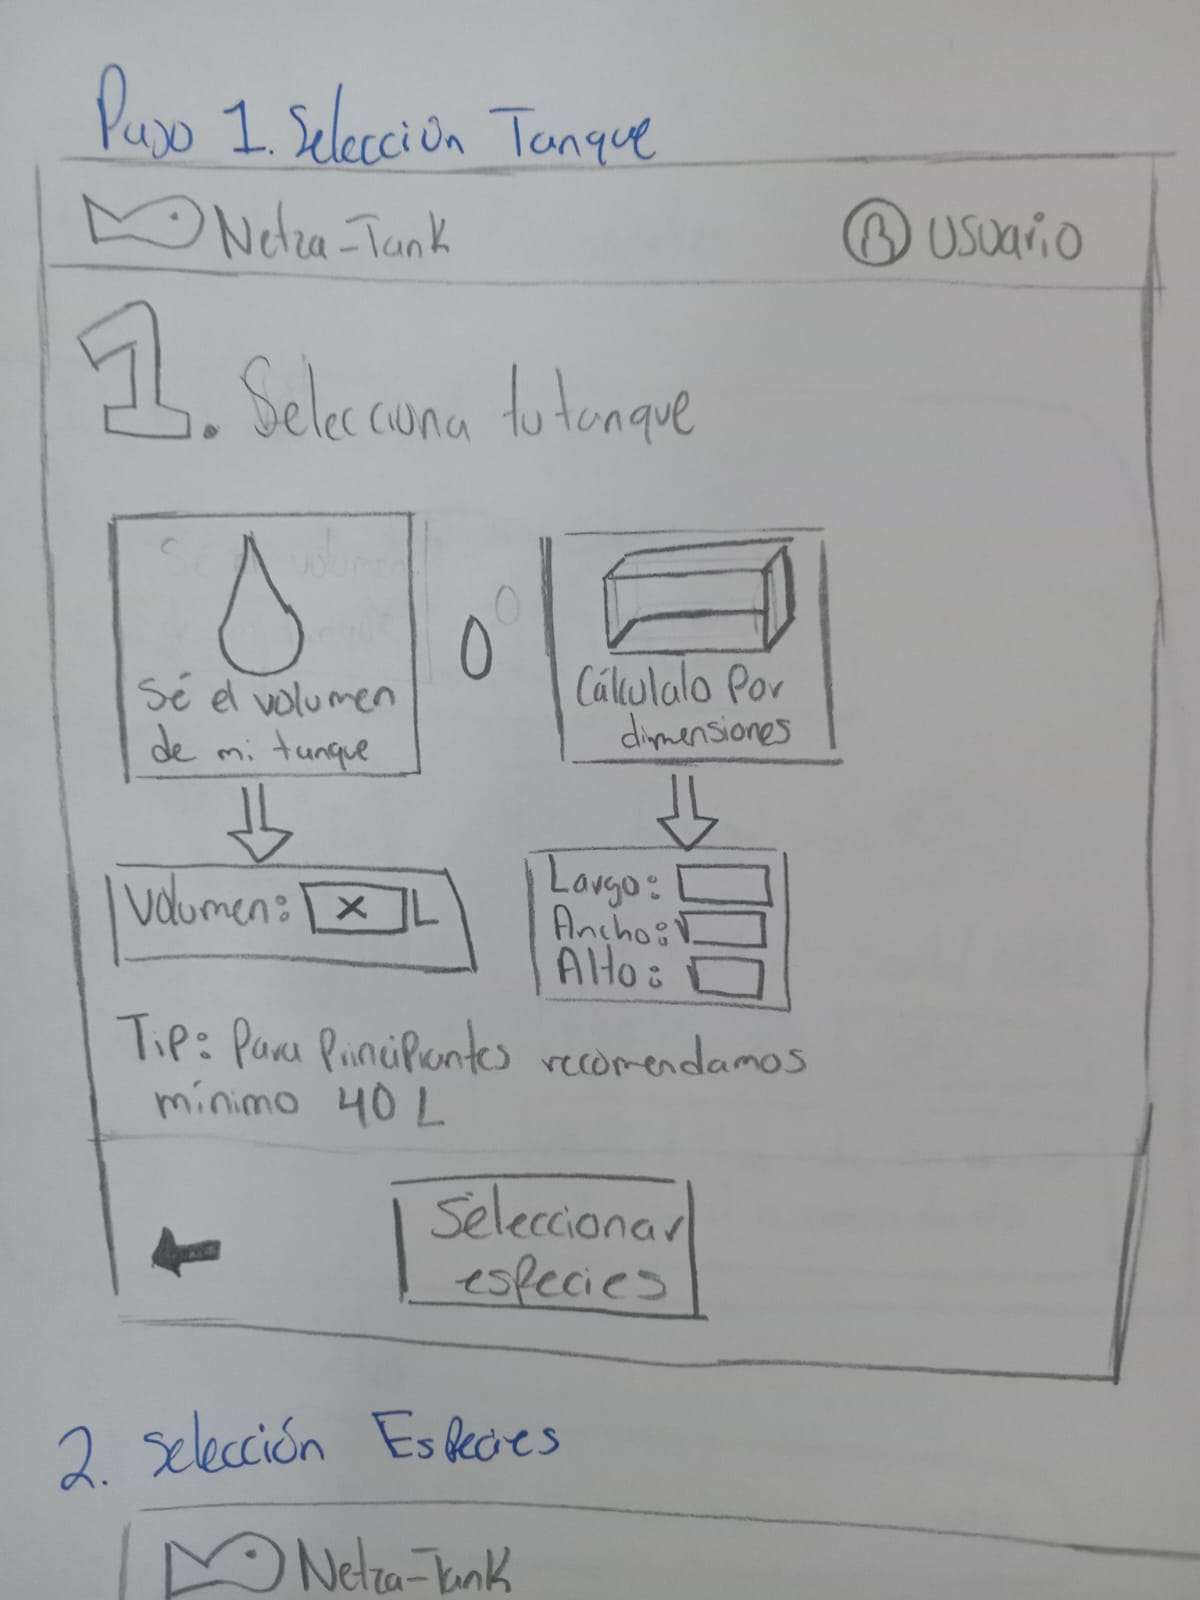 Paso 1. Selección Tanque
Netza-Tank
Usuario
1. Selecciona tu tanque
Sé el volumen
de mi tanque
O
Cálculalo Por
dimensiones
Volumen: X L
Largo:
Ancho:
Alto:
Tip: Para Principiantes recomendamos
mínimo 40 L
Seleccionar
especies
2. Selección Especies
Netza-Tank